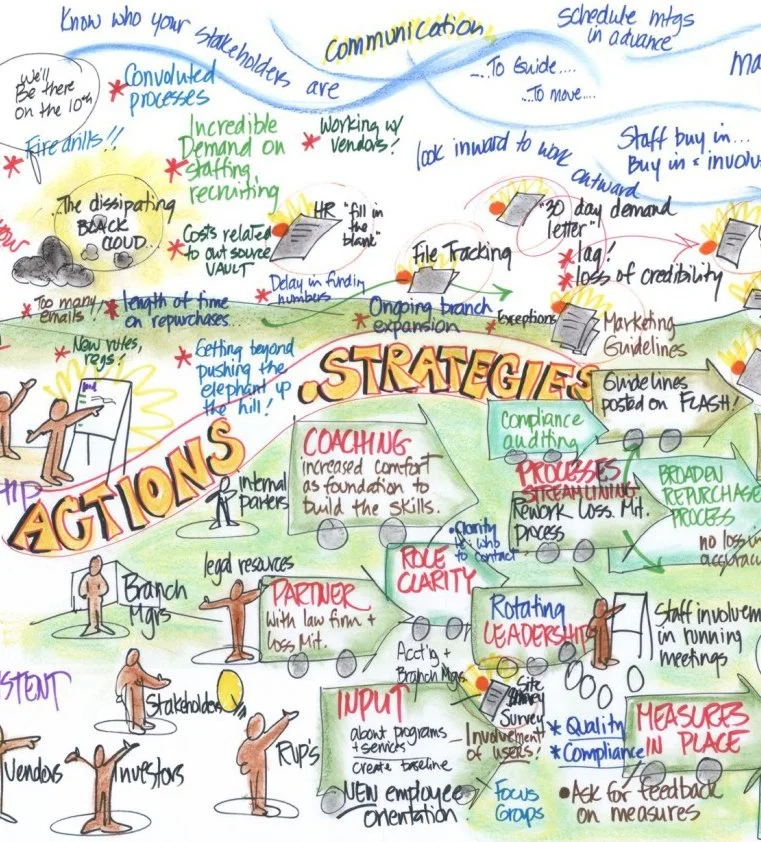 Know who your stakeholders are
communication
schedule mtgs
in advance
...To Guide....
...To move....
we'll
Be there
on the 10th
* Convoluted
processes
* Fire drills!!
Incredible
Demand on
* staffing,
recruiting
* Working w/
vendors!
look inward to work outward
Staff buy in...
Buy in = involv
...The dissipating
BLACK
CLOUD...
* Costs related
to out source
VAULT
HR "fill in
the
blank"
File Tracking
"30 day demand
letter"
* lag!
* loss of credibility
* Too many
emails!
* length of time
on repurchases...
* Delay in funding
numbers
* Ongoing branch
expansion
* Exceptions
Marketing
Guidelines
* New rules,
regs!
* Getting beyond
pushing the
elephant up
the hill!
ACTIONS
.STRATEGIES
Compliance
auditing
Guidelines
posted on FLASH!
COACHING
increased comfort
as foundation to
build the skills.
internal
parters
PROCESSES
STREAMLINING
Rework Loss. Mit.
Process
BROADEN
REPURCHASE
PROCESS
no loss
HIP
• Clarity
who
to contact
ROLE
CLARITY
legal resources
Branch
Mgrs
PARTNER
with law firm +
Loss Mit.
Acct'g +
Branch Mgrs
Rotating
LEADERSHIP
Staff involvem
in running
meetings
ISTENT
Stakeholders
INPUT
about programs
+ services
create baseline
NEW employee
orientation.
Site
Survey
— Involvement
of users!
* Quality
* Compliance
MEASURES
IN PLACE
Vendors
Investors
Rvp's
Focus
Groups
• Ask for feedback
on measures